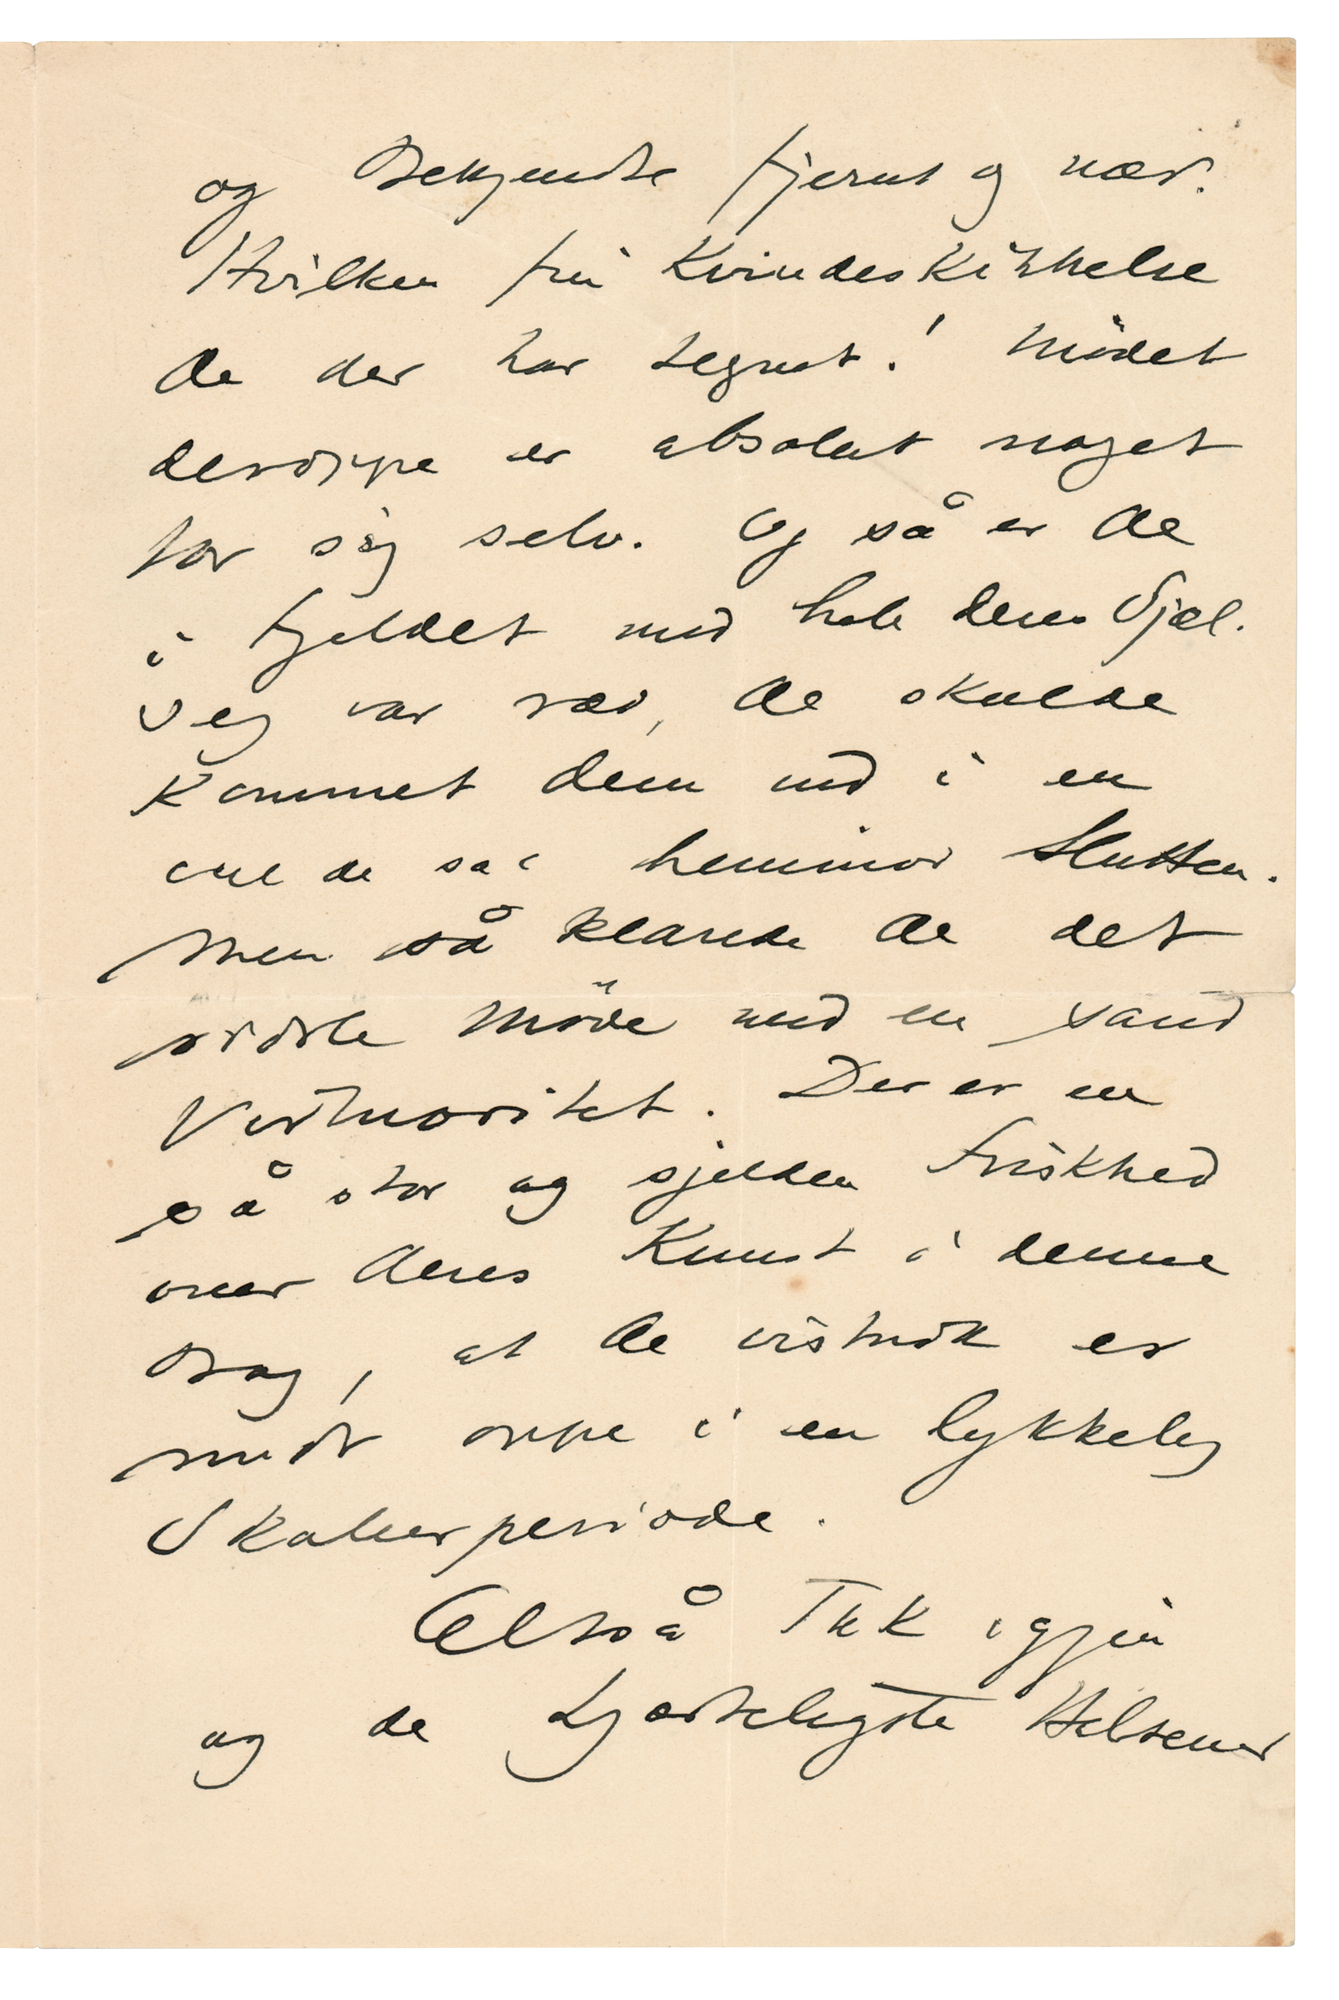 og Bekjendte fjernt og nær.
Hvilken fin Kvindeskikkelse
De der har tegnet! Mödet
deroppe er absolut noget
for sig selv. Og så er De
i fjeldet med hele Deres Sjæl.
Jeg var ræd, De skulde
kommet dem ned i en
de sa hemmor Hutten.
Men så klarede De det
sidste Möde med en sand
Virtuositet. Der er en
så stor og sjelden Friskhed
over Deres Kunst i denne
Bog, at De vistnok er
midt oppe i en lykkelig
Skaberperiode.
Altså Tak igjen
og de hjærteligste Hilsener